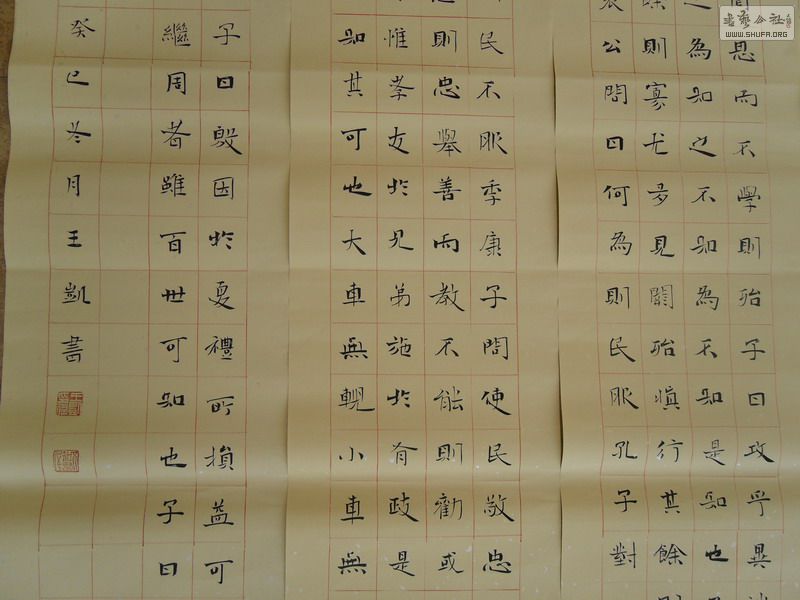 書藝公社
WWW.SHUFA.ORG
思而不學則殆子曰攻乎異
之為知之不知為不知是知也
餘則寡尤多見闕殆慎行其餘
哀公問曰何為則民服孔子對
民不服季康子問使民敬忠
則忠舉善而教不能則勸或
惟孝友於兄弟施於有政是
知其可也大車無輗小車無
子曰殷因於夏禮所損益可
繼周者雖百世可知也子曰
癸巳冬月王凱書